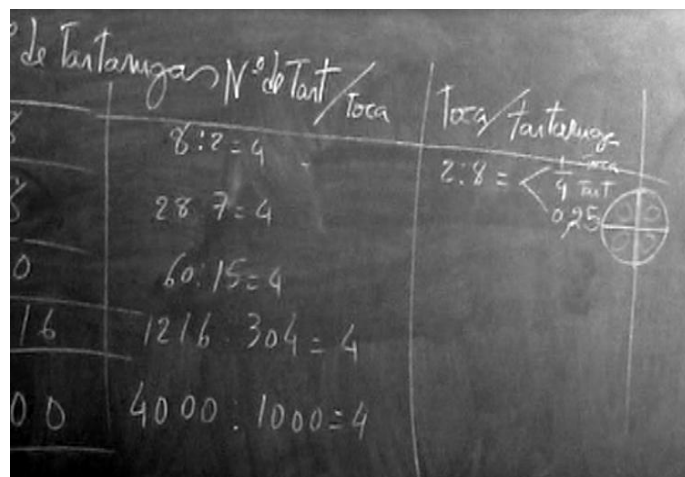 º de Tartarugas Nº de Tart/Toca Toca/tartaruga
8 8:2=4 2:8= 1/4 Toca/Tart
0,25
8 28:7=4
0 60:15=4
16 1216:304=4
00 4000:1000=4